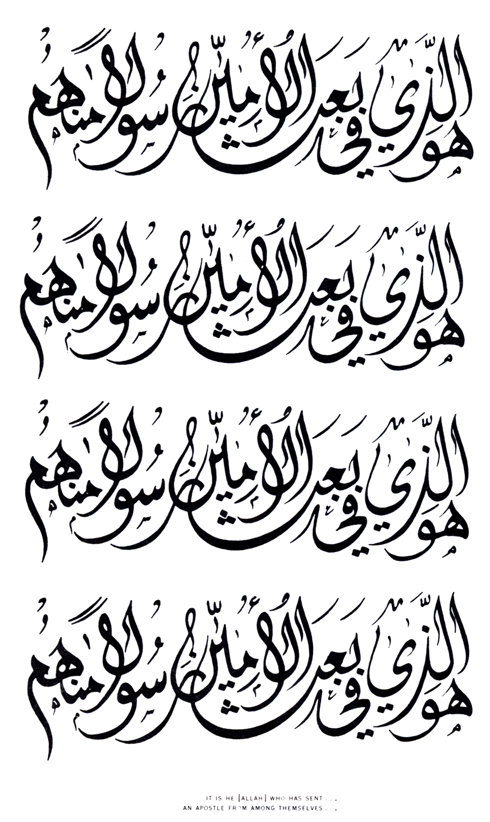 هُوَ الَّذِي بَعَثَ فِي الْأُمِّيِّينَ رَسُولًا مِنْهُمْ
هُوَ الَّذِي بَعَثَ فِي الْأُمِّيِّينَ رَسُولًا مِنْهُمْ
هُوَ الَّذِي بَعَثَ فِي الْأُمِّيِّينَ رَسُولًا مِنْهُمْ
هُوَ الَّذِي بَعَثَ فِي الْأُمِّيِّينَ رَسُولًا مِنْهُمْ
IT IS HE [ALLAH] WHO HAS SENT . . .
AN APOSTLE FROM AMONG THEMSELVES . . .